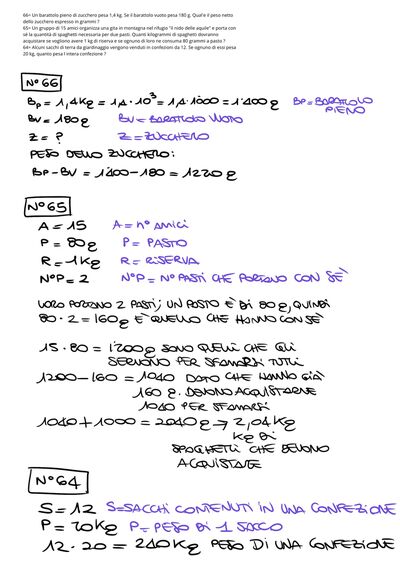 66= Un barattolo pieno di zucchero pesa 1,4 kg. Se il barattolo vuoto pesa 180 g. Qual'è il peso netto
dello zucchero espresso in grammi ?
65= Un gruppo di 15 amici organizza una gita in montagna nel rifugio "Il nido delle aquile" e porta con
sé la quantità di spaghetti necessaria per due pasti. Quanti kilogrammi di spaghetti dovranno
acquistare se vogliono avere 1 kg di riserva e se ognuno di loro ne consuma 80 grammi a pasto ?
64= Alcuni sacchi di terra da giardinaggio vengono venduti in confezioni da 12. Se ognuno di essi pesa
20 kg, quanto pesa l intera confezione ?
N° 66
BP = 1,4Kg = 1,4 · 10³ = 1,4 · 1000 = 1400 g BP = BARATTOLO PIENO
BV = 180 g BV = BARATTOLO VUOTO
Z = ? Z = ZUCCHERO
PESO DELLO ZUCCHERO:
BP - BV = 1400 - 180 = 1220 g
N° 65
A = 15 A = n° AMICI
P = 80 g P = PASTO
R = 1 Kg R = RISERVA
N°P = 2 N°P = N° PASTI CHE PORTANO CON SÈ
LORO PORTANO 2 PASTI; UN PASTO È DI 80 g, QUINDI
80 · 2 = 160 g È QUELLO CHE HANNO CON SÈ
15 · 80 = 1200 g SONO QUELLI CHE GLI
SERVONO PER SFAMARSI TUTTI
1200 - 160 = 1040 DATO CHE HANNO GIÀ
160 g. DEVONO ACQUISTARNE
1040 PER SFAMARSI
1040 + 1000 = 2040 g → 2,04 Kg
Kg DI
SPAGHETTI CHE DEVONO
ACQUISTARE
N° 64
S = 12 S = SACCHI CONTENUTI IN UNA CONFEZIONE
P = 20 Kg P = PESO DI 1 SACCO
12 · 20 = 240 Kg PESO DI UNA CONFEZIONE